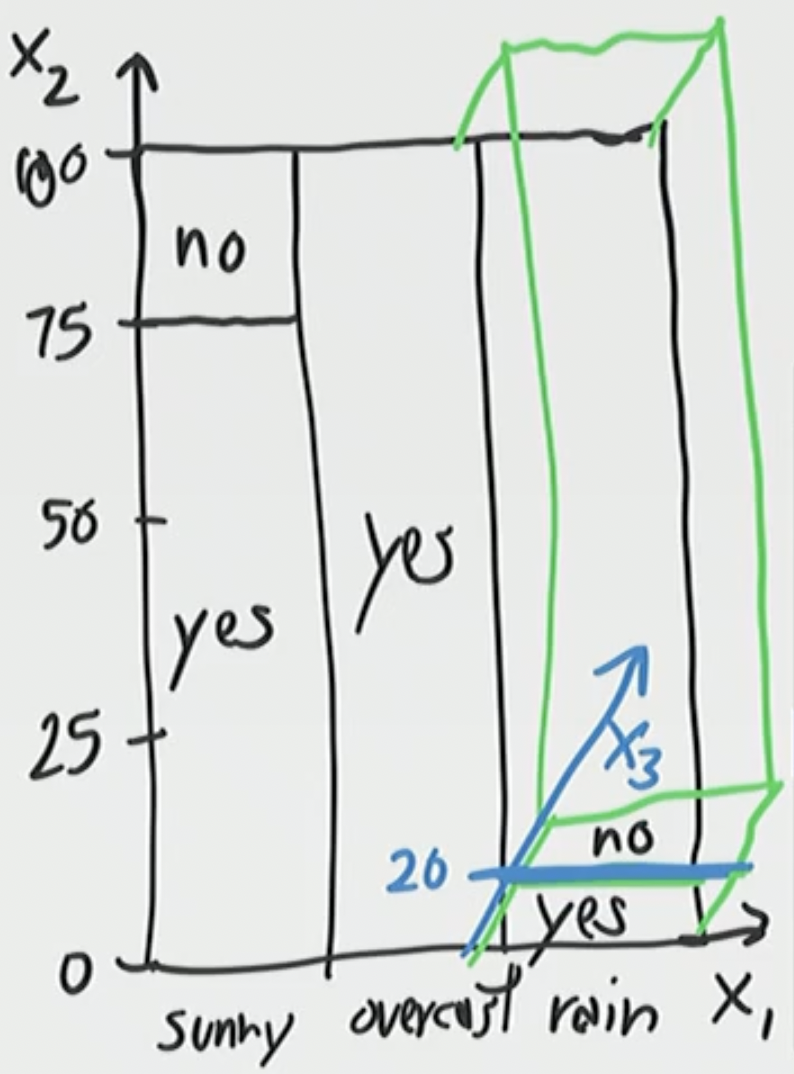 X₂
100
no
75
50
yes
yes
25
X₃
no
20
yes
0
sunny overcast rain X₁